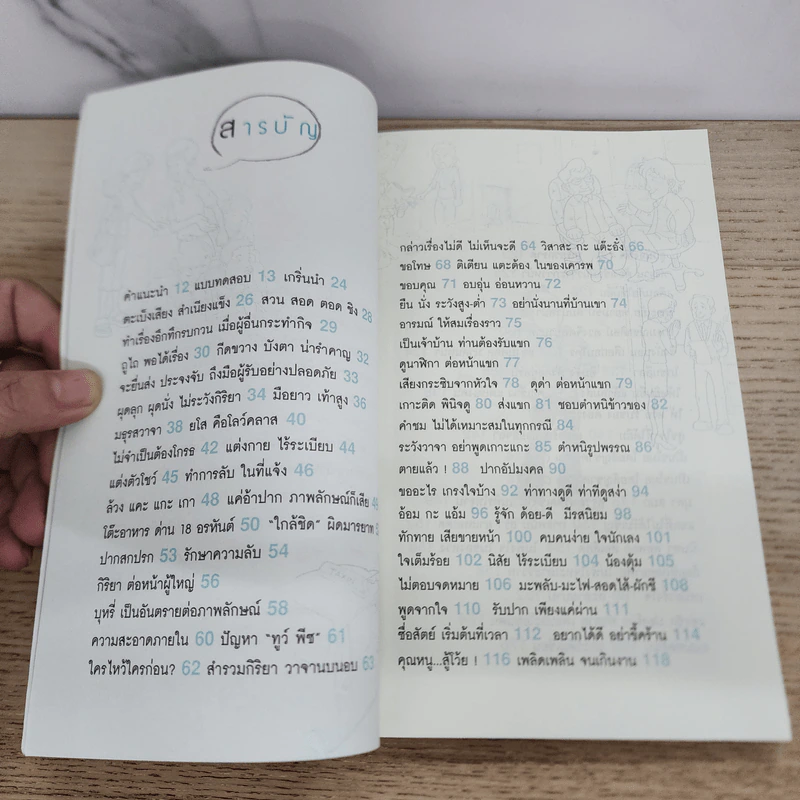 สารบัญ
คำแนะนำ 12 แบบทดสอบ 13 เกริ่นนำ 24
ตะเบ็งเสียง สำเนียงแข็ง 26 สวน สอด ตอด ขิง 28
ทำเรื่องอึกทึกรบกวน เมื่อผู้อื่นกระทำกิจ 29
ถูไถ พอได้เรื่อง 30 กีดขวาง บังตา น่ารำคาญ 32
จะยื่นส่ง ประจงจับ ถึงมือผู้รับอย่างปลอดภัย 33
ผุดลุก ผุดนั่ง ไม่ระวังกิริยา 34 มือยาว เท้าสูง 36
มธุรสวาจา 38 ยโส คือโลว์คลาส 40
ไม่จำเป็นต้องโกรธ 42 แต่งกาย ไร้ระเบียบ 44
แต่งตัวโชว์ 45 ทำการลับ ในที่แจ้ง 46
ล้วง แคะ แกะ เกา 48 แค่อ้าปาก ภาพลักษณ์ก็เสีย
โต๊ะอาหาร ด่าน 18 อรหันต์ 50 "ใกล้ชิด" ผิดมารยาท
ปากสกปรก 53 รักษาความลับ 54
กิริยา ต่อหน้าผู้ใหญ่ 56
บุหรี่ เป็นอันตรายต่อภาพลักษณ์ 58
ความสะอาดภายใน 60 ปัญหา "ทูว์ พีซ" 61
ใครไหว้ใครก่อน? 62 สำรวมกิริยา วาจานบนอบ 63
กล่าวเรื่องไม่ดี ไม่เห็นจะดี 64 วิสาสะ กะ แต๊ะอั๋ง 66
ขอโทษ 68 ติเตียน แตะต้อง ในของเคารพ 70
ขอบคุณ 71 อบอุ่น อ่อนหวาน 72
ยืน นั่ง ระวังสูง-ต่ำ 73 อย่านั่งนานที่บ้านเขา 74
อารมณ์ ให้สมเรื่องราว 75
เป็นเจ้าบ้าน ท่านต้องรับแขก 76
ดูนาฬิกา ต่อหน้าแขก 77
เสียงกระซิบจากหัวใจ 78 ดุด่า ต่อหน้าแขก 79
เกาะติด พินิจดู 80 ส่งแขก 81 ชอบตำหนิข้าวของ 82
คำชม ไม่ได้เหมาะสมในทุกกรณี 84
ระวังวาจา อย่าพูดเกาะแกะ 85 ตำหนิรูปพรรณ 86
ตายแล้ว ! 88 ปากอัปมงคล 90
ขออะไร เกรงใจบ้าง 92 ท่าทางดูดี ท่าทีดูสง่า 94
อ้อม กะ แอ้ม 96 รู้จัก ด้อย-ดี มีรสนิยม 98
ทักทาย เสียขายหน้า 100 คบคนง่าย ใจนักเลง 101
ใจเต็มร้อย 102 นิสัย ไร้ระเบียบ 104 น้องตุ้ม 105
ไม่ตอบจดหมาย 106 มะพลับ-มะไฟ-สอดไส้-ผักชี 108
พูดจากใจ 110 รับปาก เพียงแค่ผ่าน 111
ซื่อสัตย์ เริ่มต้นที่เวลา 112 อยากได้ดี อย่าขี้คร้าน 114
คุณหนู...สู้โว้ย ! 116 เพลิดเพลิน จนเกินงาน 118